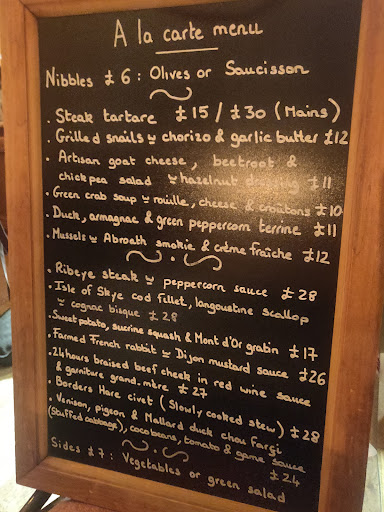 A la carte menu
Nibbles £6 : Olives or Saucisson
. Steak tartare £15 / £30 (Mains)
. Grilled snails w chorizo & garlic butter £12
. Artisan goat cheese, beetroot &
chickpea salad w hazelnut dressing £11
. Green crab soup w rouille, cheese & croutons £10
. Duck, armagnac & green peppercorn terrine £11
. Mussels w Abroath smokie & crème fraîche £12
. Ribeye steak w peppercorn sauce £28
. Isle of Skye cod fillet, langoustine scallop
w cognac bisque £28
. Sweet potato, sucrine squash & Mont d'Or gratin £17
. Farmed French rabbit w Dijon mustard sauce £26
. 24 hours braised beef cheek in red wine sauce
& garniture grand.mère £27
. Borders Hare civet (Slowly cooked stew) £28
. Venison, pigeon & Mallard duck chou Farçi
(Stuffed cabbage), coco beans, tomato & game sauce
£24
Sides £7 : Vegetables or green salad